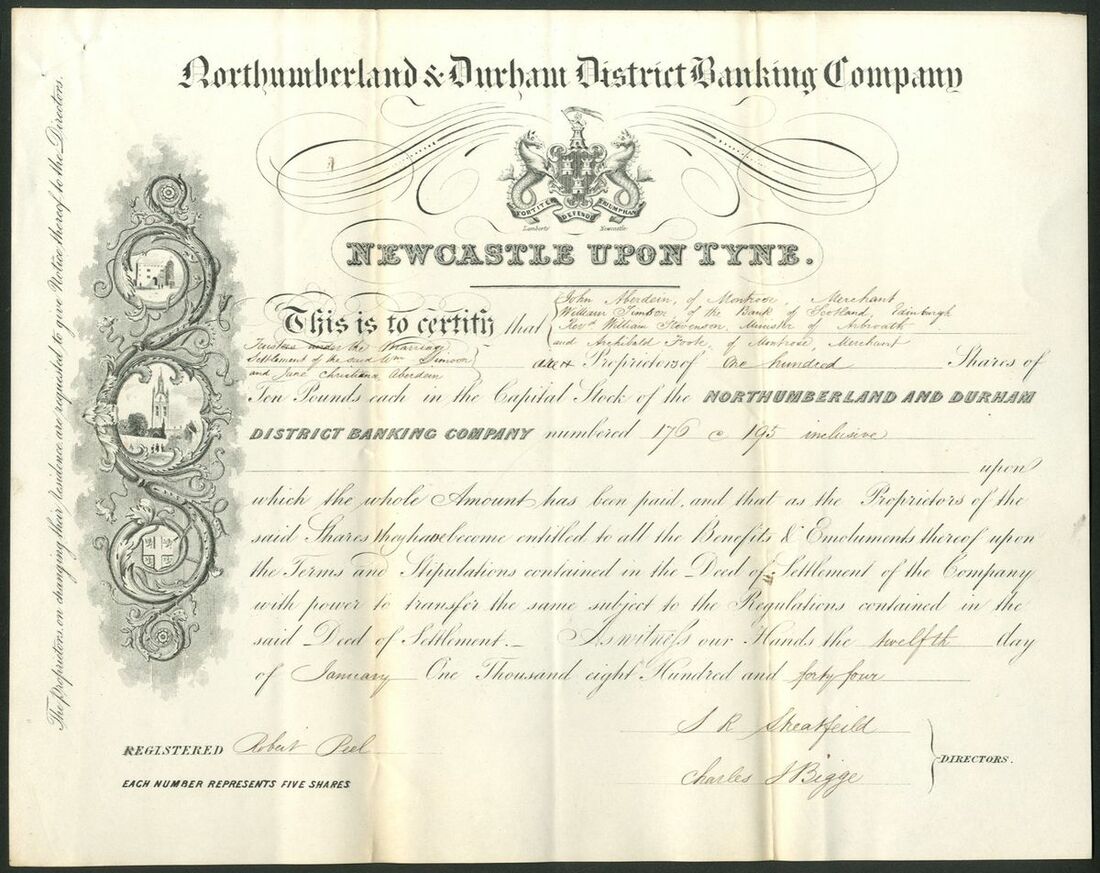 Northumberland & Durham District Banking Company
FORTITER DEFENDIT TRIUMPHANS
Lamberts Newcastle
NEWCASTLE UPON TYNE.
This is to certify that
John Aberdein, of Montrose, Merchant
William Simson of the Bank of Scotland, Edinburgh
Revd. William Stevenson, Minister of Arbroath
and Archibald Foote, of Montrose, Merchant
Trustees under the Marriage
Settlement of the said Wm Simson
and Jane Christiana Aberdein
are Proprietors of One hundred Shares of
Ten Pounds each in the Capital Stock of the NORTHUMBERLAND AND DURHAM
DISTRICT BANKING COMPANY numbered 176 @ 195 inclusive
upon
which the whole Amount has been paid, and that as the Proprietors of the
said Shares they have become entitled to all the Benefits & Emoluments thereof upon
the Terms and Stipulations contained in the Deed of Settlement of the Company
with power to transfer the same subject to the Regulations contained in the
said Deed of Settlement.— As witness our Hands the twelfth day
of January One Thousand eight Hundred and forty four
S R Sheatfeild
Charles J Bigge
DIRECTORS.
REGISTERED Robert Peel
EACH NUMBER REPRESENTS FIVE SHARES
The Proprietors, on changing their Residence are requested to give Notice thereof to the Directors.